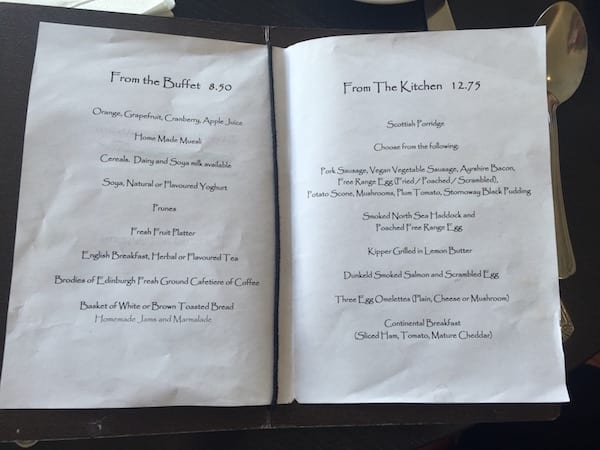 From the Buffet 8.50
Orange, Grapefruit, Cranberry, Apple Juice
Home Made Muesli
Cereals, Dairy and Soya milk available
Soya, Natural or Flavoured Yoghurt
Prunes
Fresh Fruit Platter
English Breakfast, Herbal or Flavoured Tea
Brodies of Edinburgh Fresh Ground Cafetiere of Coffee
Basket of White or Brown Toasted Bread
Homemade Jams and Marmalade
From The Kitchen 12.75
Scottish Porridge
Choose from the following:
Pork Sausage, Vegan Vegetable Sausage, Ayrshire Bacon,
Free Range Egg (Fried / Poached / Scrambled),
Potato Scone, Mushrooms, Plum Tomato, Stornoway Black Pudding
Smoked North Sea Haddock and
Poached Free Range Egg
Kipper Grilled in Lemon Butter
Dunkeld Smoked Salmon and Scrambled Egg
Three Egg Omelettes (Plain, Cheese or Mushroom)
Continental Breakfast
(Sliced Ham, Tomato, Mature Cheddar)